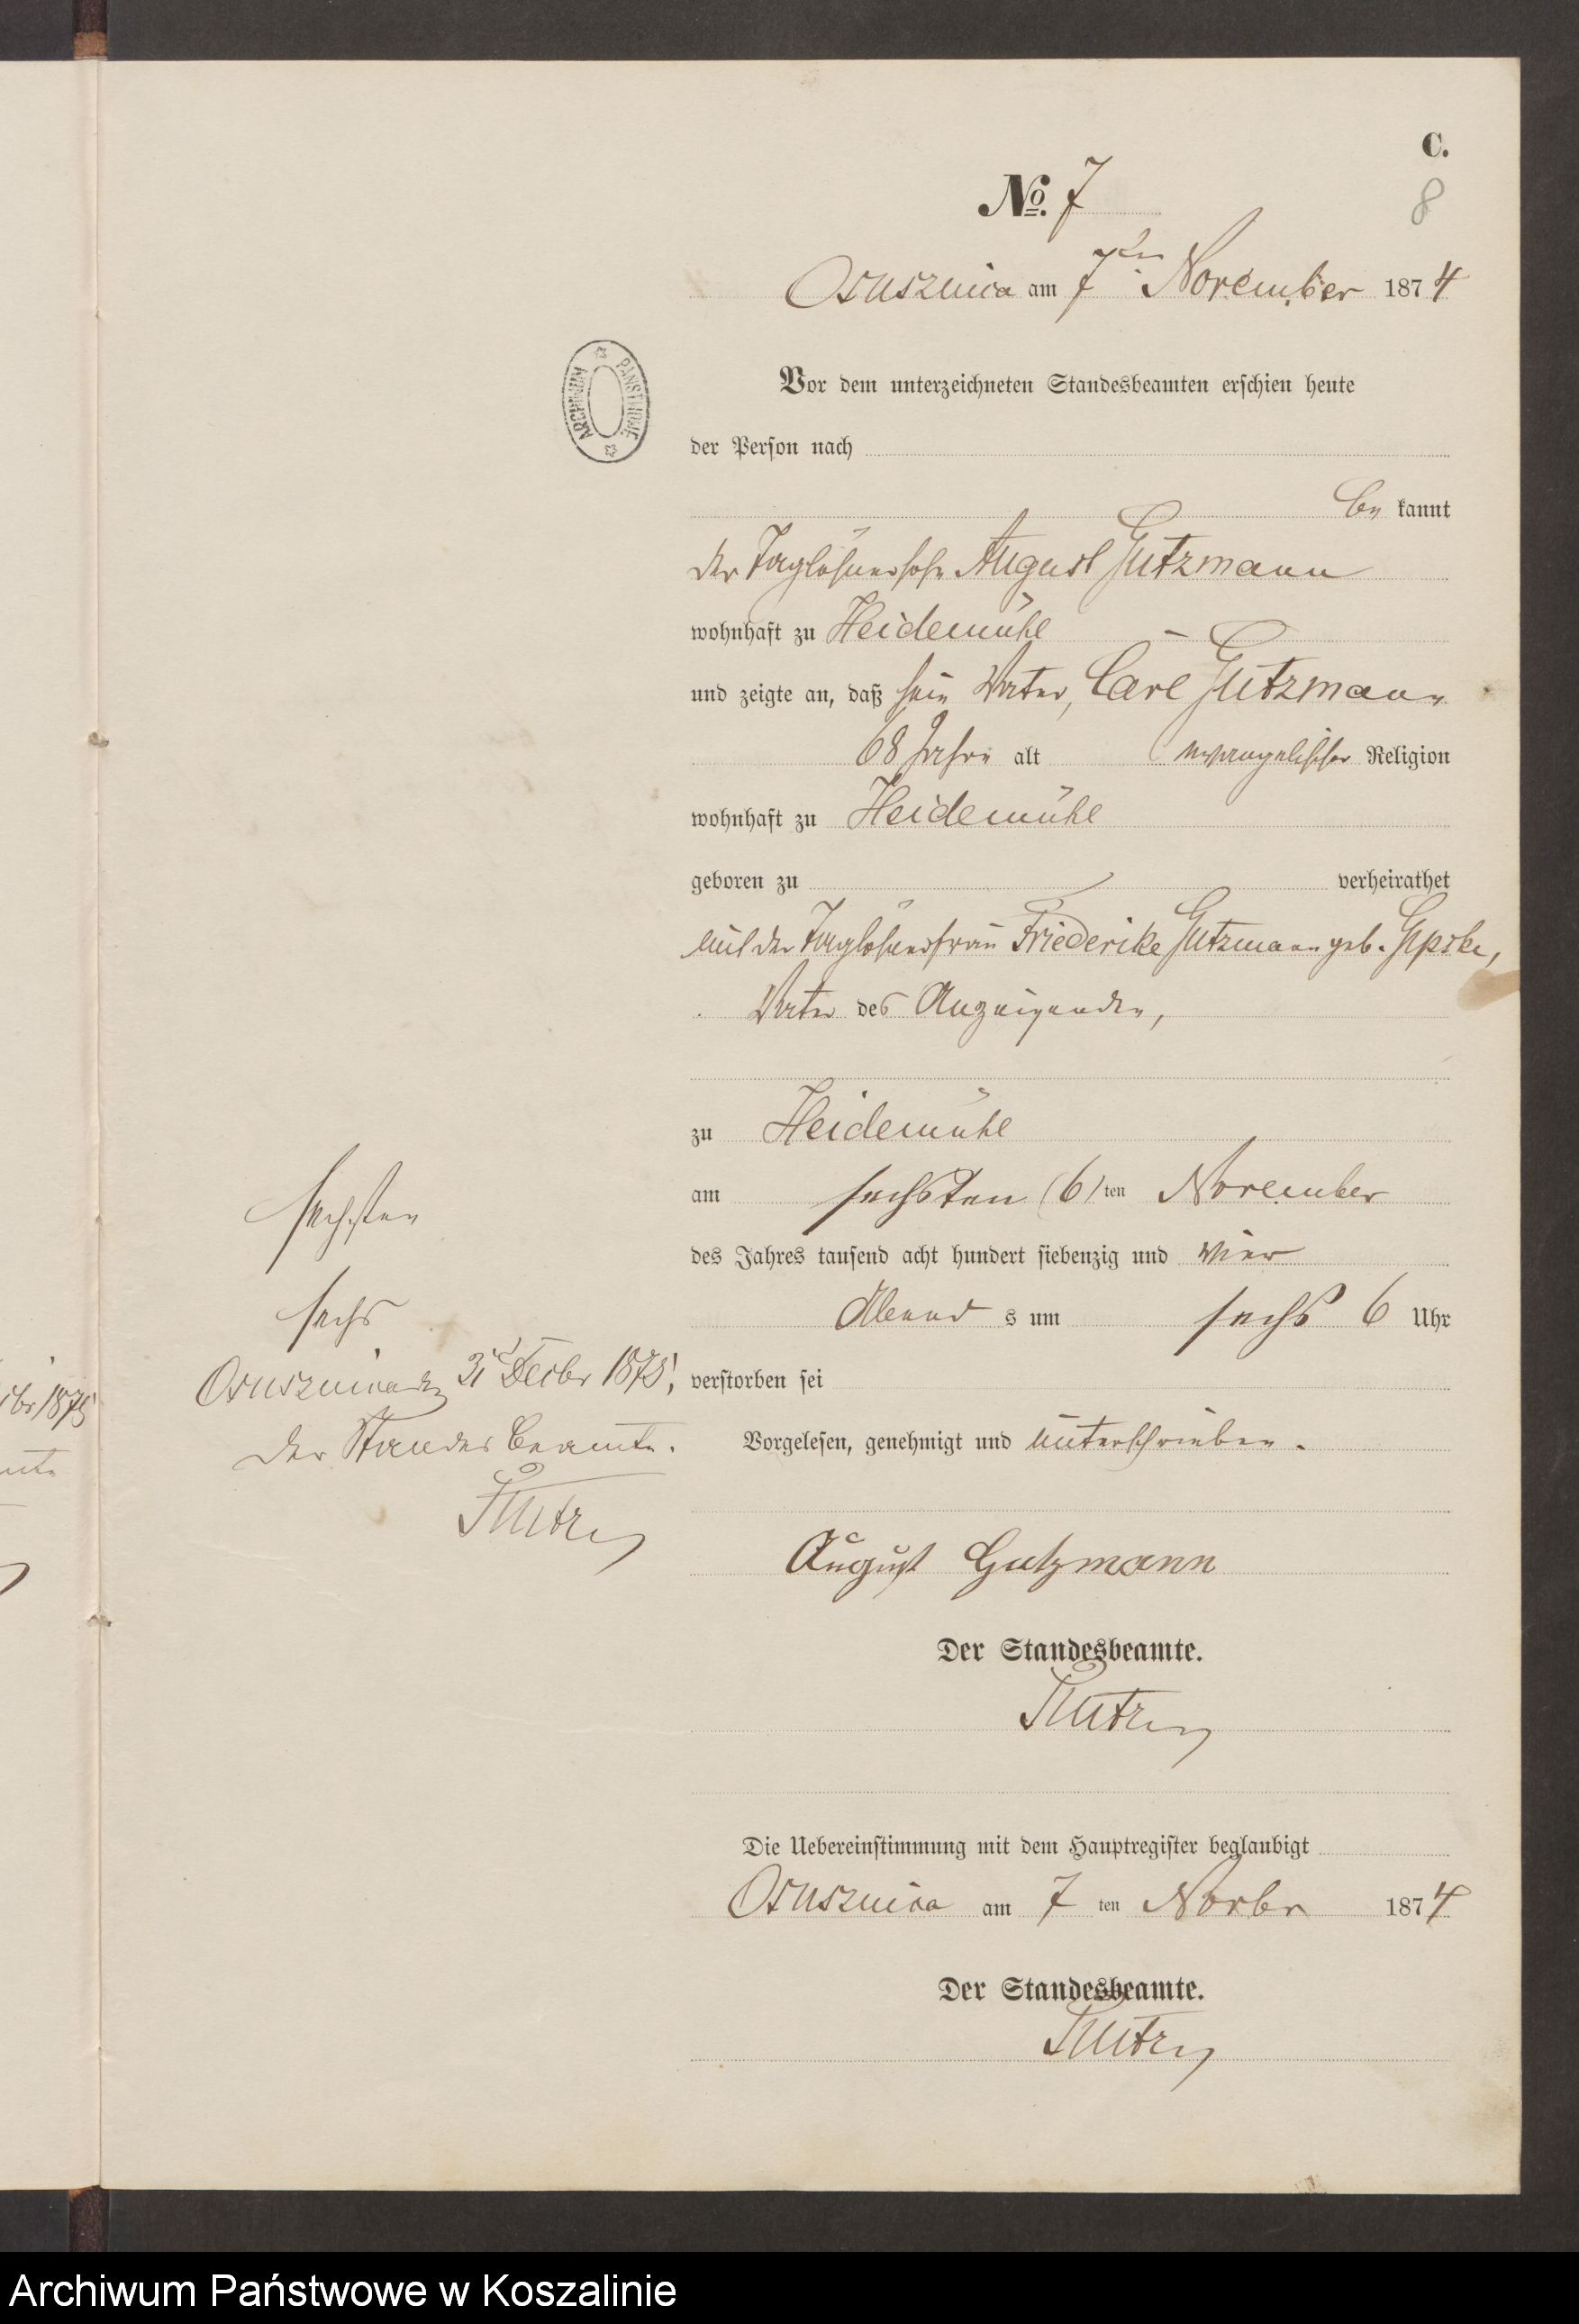 C.
No. 7
8
Osusznica am 7ten November 1874
ARCHIWUM PAŃSTWOWE
Vor dem unterzeichneten Standesbeamten erschien heute
der Person nach
be kannt
der Taglöhnersohn August Gutzmann
wohnhaft zu Heidemühl
und zeigte an, daß sein Vater, Carl Gutzmann
68 Jahre alt evangelischer Religion
wohnhaft zu Heidemühl
geboren zu verheirathet
mit der Taglöhnerfrau Friederike Gutzmann geb.
Vater des Anzeigenden,
zu Heidemühl
am sechsten (6) ten November
des Jahres tausend acht hundert siebenzig und vier
Abend s um sechs 6 Uhr
verstorben sei
Vorgelesen, genehmigt und unterschrieben.
August Gutzmann
Der Standesbeamte.
Die Uebereinstimmung mit dem Hauptregister beglaubigt
Osusznica am 7 ten Novbr 1874
Der Standesbeamte.
sechsten
sechs
Osusznica den 31 Decbr 1875,
Der Standes Beamte.
Archiwum Państwowe w Koszalinie